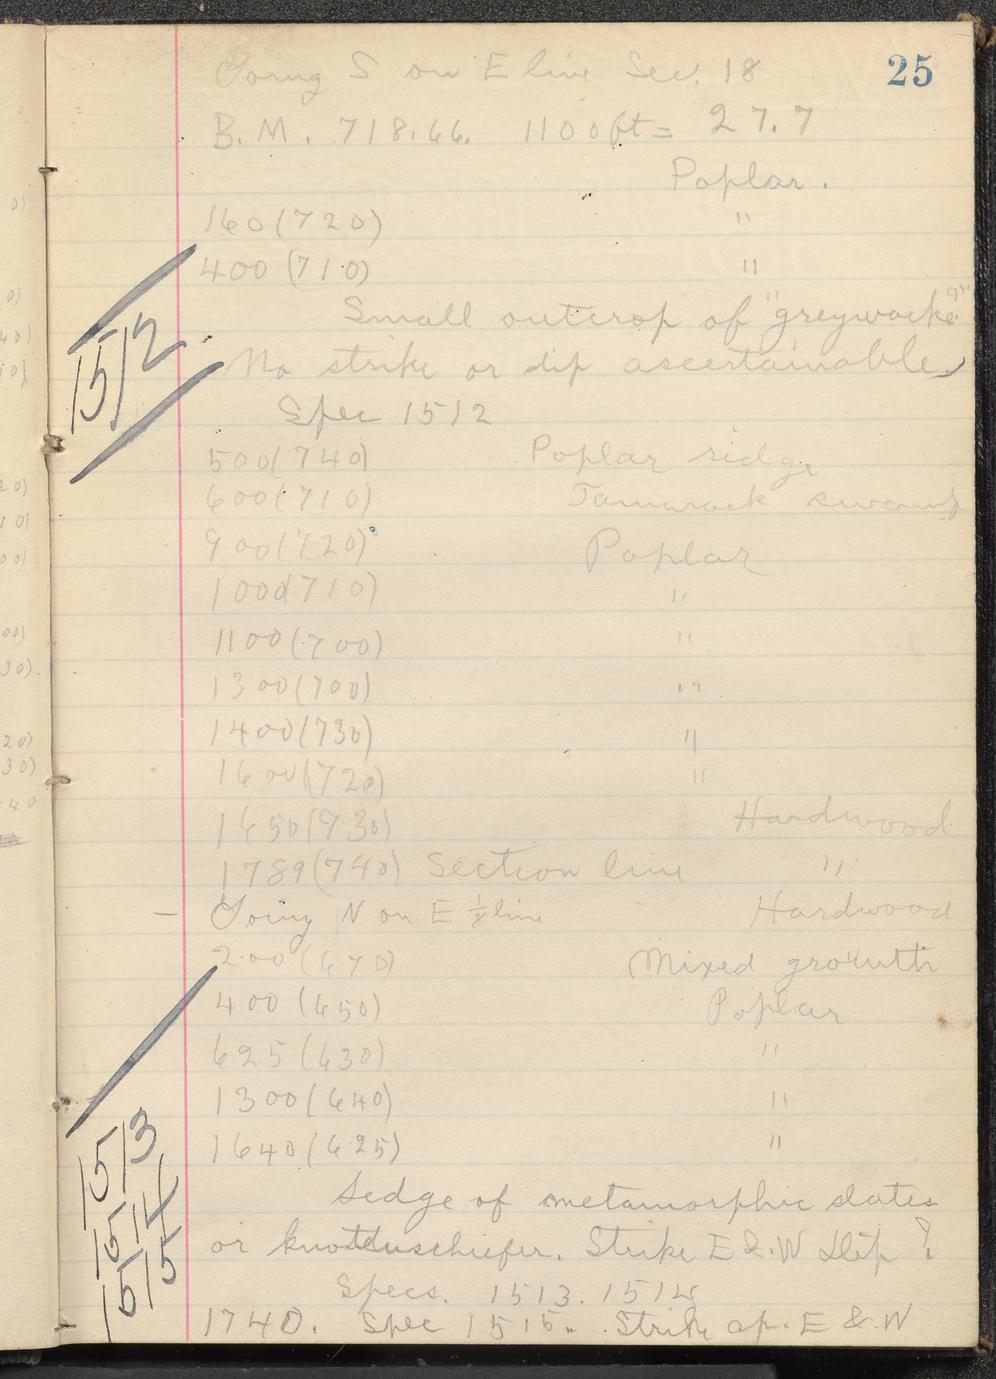 25
Going S on E line Sec. 18
B.M. 718.66. 1100ft = 27.7
Poplar.
160 (720) "
400 (710) "
Small outcrop of "greywacke?"
No strike or dip ascertainable
Spec 1512
1512
500 (740) Poplar ridge
600 (710) Tamarack swamp
900 (720) Poplar
1000 (710) "
1100 (700) "
1300 (700) "
1400 (730) "
1600 (720) "
1650 (730) Hardwood
1789 (740) Section line "
– Going N on E 1/8 line Hardwood
200 (670) Mixed growth
400 (650) Poplar
625 (630) "
1300 (640) "
1640 (625) "
Ledge of metamorphic slates
or knottenschiefer. Strike E & W Dip ?
Specs. 1513. 1514
1740. Spec 1515. Strike ap. E & W
1513
1514
1515